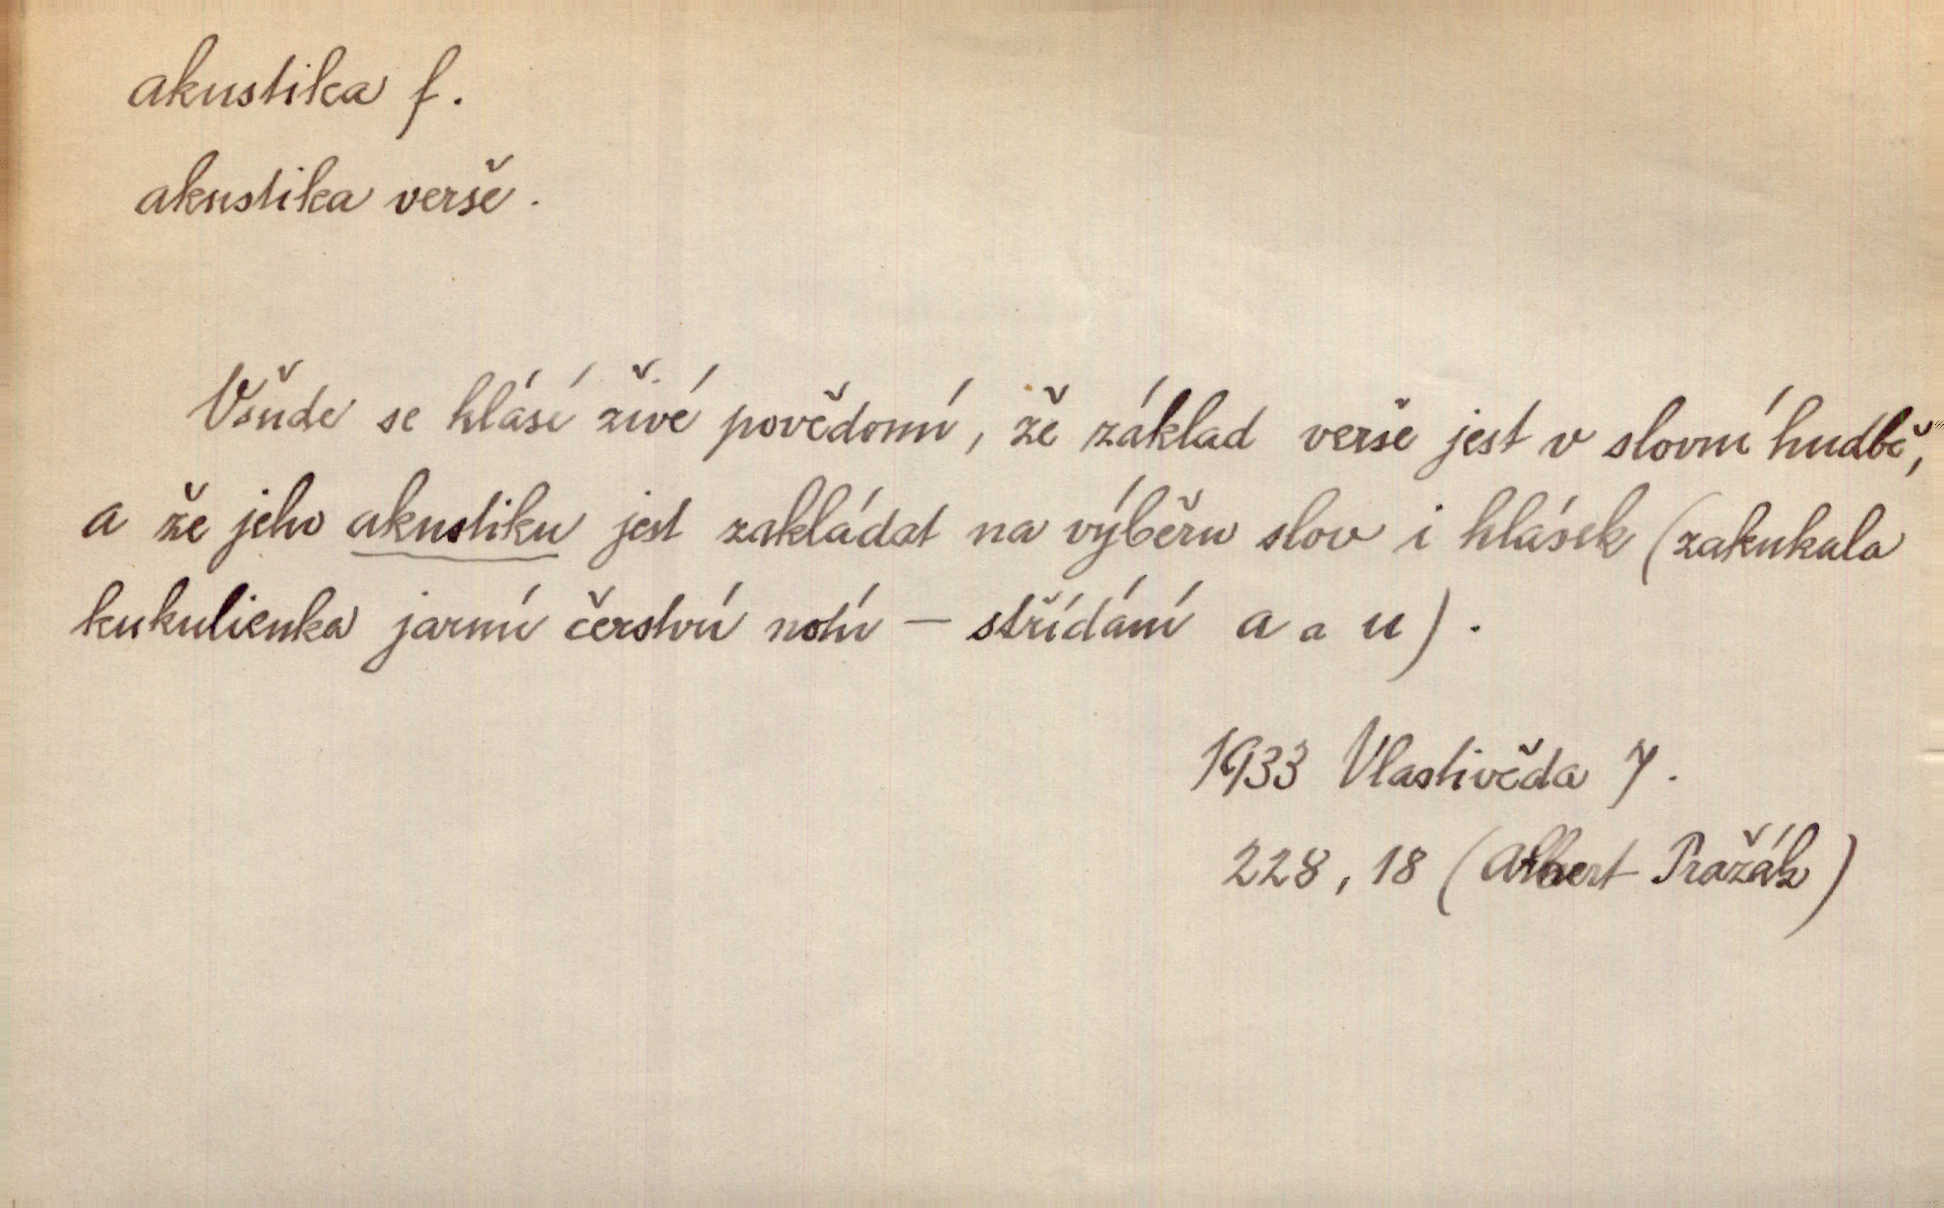 akustika f.
akustika verše.
Všude se hlásí živé povědomí, že základ verše jest v slovní hudbě,
a že jeho akustiku jest zakládat na výběru slov i hlásek (zakukala
kukulienka jarní čerství – střídání a a u).
1933 Vlastivěda 7.
228, 18 (Albert Pražák)